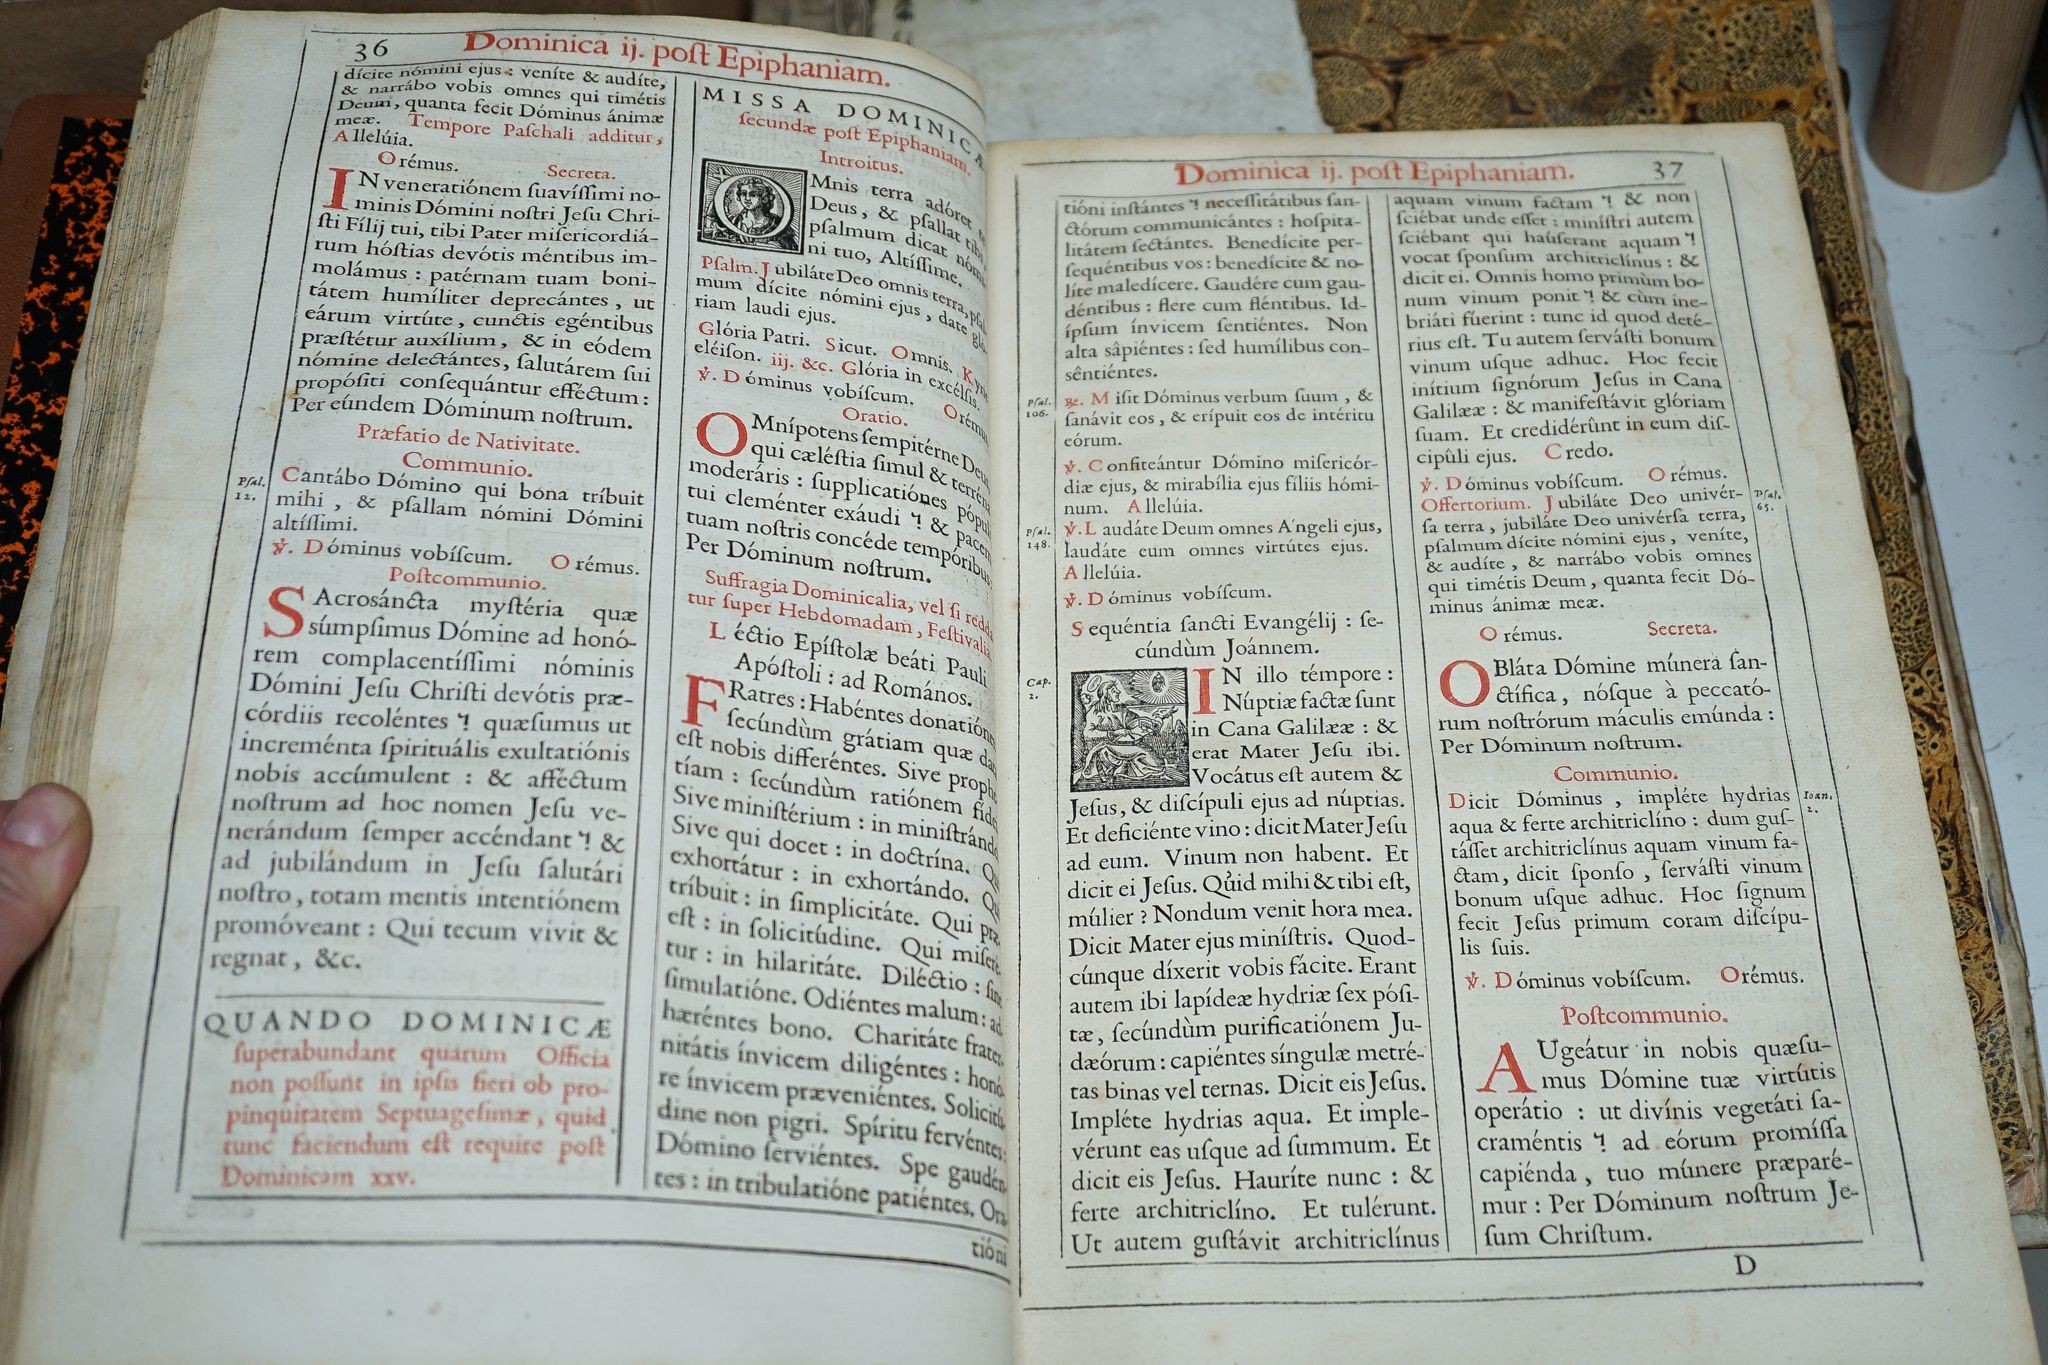 36
Dominica ij. poſt Epiphaniam.
dícite nómini ejus: veníte & audíte,
& narrábo vobis omnes qui timétis
Deum, quanta fecit Dóminus ánimæ
meæ. Tempore Paſchali additur,
Allelúia.
Orémus. Secreta.
IN veneratiónem ſuavíſſimi no-
minis Dómini noſtri Jeſu Chri-
ſti Fílij tui, tibi Pater miſericordiá-
rum hóſtias devótis méntibus im-
molámus: patérnam tuam boni-
tátem humíliter deprecántes, ut
eárum virtúte, cunctis egéntibus
præſtétur auxílium, & in eódem
nómine delectántes, ſalutárem ſui
propóſiti conſequántur efféctum:
Per eúndem Dóminum noſtrum.
Præfatio de Nativitate.
Communio.
Pſal. 12.
Cantábo Dómino qui bona tríbuit
mihi, & pſallam nómini Dómini
altíſſimi.
℣. Dóminus vobíſcum. Orémus.
Poſtcommunio.
SAcroſáncta myſtéria quæ
súmpſimus Dómine ad honó-
rem complacentíſſimi nóminis
Dómini Jeſu Chriſti devótis præ-
córdiis recoléntes ꝶ quæſumus ut
increménta ſpirituális exultatiónis
nobis accúmulent: & afféctum
noſtrum ad hoc nomen Jeſu ve-
nerándum ſemper accéndant ꝶ &
ad jubilándum in Jeſu ſalutári
noſtro, totam mentis intentiónem
promóveant: Qui tecum vivit &
regnat, &c.
QUANDO DOMINICÆ
ſuperabundant quarum Officia
non poſſunt in ipſis fieri ob pro-
pinquitatem Septuageſimæ, quid
tunc faciendum eſt require poſt
Dominicam xxv.
MISSA DOMINICÆ
ſecundæ poſt Epiphaniam.
Introitus.
OMnis terra adóret
Deus, & pſallat tibi
pſalmum dicat nómi
ni tuo, Altíſſime.
Pſalm. Jubiláte Deo omnis terra, pſal
mum dícite nómini ejus, date gló
riam laudi ejus.
Glória Patri. Sicut. Omnis. Kyrie
eléiſon. iij. &c. Glória in excélſis.
℣. Dóminus vobíſcum. Orémus
Oratio.
OMnípotens ſempitérne Deus
qui cæléſtia ſimul & terréna
moderáris: ſupplicatiónes pópuli
tui cleménter exáudi ꝶ & pacem
tuam noſtris concéde tempóribus
Per Dóminum noſtrum.
Suffragia Dominicalia, vel ſi redda
tur ſuper Hebdomadam, Feſtivalia
Léctio Epíſtolæ beáti Pauli
Apóſtoli: ad Romános.
FRatres: Habéntes donatiónes
ſecúndùm grátiam quæ data
eſt nobis differéntes. Sive prophe
tíam: ſecúndùm ratiónem fidei
Sive miniſtérium: in miniſtrándo
Sive qui docet: in doctrína. Qui
exhortátur: in exhortándo. Qui
tríbuit: in ſimplicitáte. Qui præ
eſt: in ſolicitúdine. Qui miſeré
tur: in hilaritáte. Diléctio: ſine
ſimulatióne. Odiéntes malum: ad
hæréntes bono. Charitáte frater
nitátis ínvicem diligéntes: honó
re ínvicem præveniéntes. Solicitú
dine non pigri. Spíritu fervéntes:
Dómino ſerviéntes. Spe gaudén
tes: in tribulatióne patiéntes. Ora
tióni
Dominica ij. poſt Epiphaniam.
37
tióni inſtántes ꝶ neceſſitátibus ſan-
ctórum communicántes: hoſpita-
litátem ſectántes. Benedícite per-
ſequéntibus vos: benedícite & no-
líte maledícere. Gaudére cum gau-
déntibus: flere cum fléntibus. Id-
ípſum ínvicem sentiéntes. Non
alta sâpiéntes: ſed humílibus con-
sêntiéntes.
Pſal. 106.
℟. Miſit Dóminus verbum ſuum, &
ſanávit eos, & erípuit eos de intéritu
eórum.
℣. Confiteántur Dómino miſericór-
diæ ejus, & mirabília ejus fíliis hómi-
num. Allelúia.
Pſal. 148.
℣. Laudáte Deum omnes A'ngeli ejus,
laudáte eum omnes virtútes ejus.
Allelúia.
℣. Dóminus vobíſcum.
Sequéntia ſancti Evangélij: ſe-
cúndùm Joánnem.
Cap. 2.
IN illo témpore:
Núptiæ factæ ſunt
in Cana Galilææ: &
erat Mater Jeſu ibi.
Vocátus eſt autem &
Jeſus, & diſcípuli ejus ad núptias.
Et deficiénte vino: dicit Mater Jeſu
ad eum. Vinum non habent. Et
dicit ei Jeſus. Quid mihi & tibi eſt,
múlier? Nondum venit hora mea.
Dicit Mater ejus miníſtris. Quod-
cúnque díxerit vobis fácite. Erant
autem ibi lapídeæ hydriæ ſex póſi-
tæ, ſecúndùm purificatiónem Ju-
dæórum: capiéntes síngulæ metré-
tas binas vel ternas. Dicit eis Jeſus.
Impléte hydrias aqua. Et imple-
vérunt eas uſque ad ſummum. Et
dicit eis Jeſus. Hauríte nunc: &
ferte architriclíno. Et tulérunt.
Ut autem guſtávit architriclínus
aquam vinum factam ꝶ & non
ſciébat unde eſſet: miníſtri autem
ſciébant qui háuſerant aquam ꝶ
vocat ſponſum architriclínus: &
dicit ei. Omnis homo primùm bo-
num vinum ponit ꝶ & cùm ine-
briáti fúerint: tunc id quod deté-
rius eſt. Tu autem ſervásti bonum
vinum uſque adhuc. Hoc fecit
inítium ſignórum Jeſus in Cana
Galilææ: & manifeſtávit glóriam
ſuam. Et credidérûnt in eum diſ-
cipûli ejus. Credo.
℣. Dóminus vobíſcum. Orémus.
Pſal. 65.
Offertorium. Jubiláte Deo univér-
ſa terra, jubiláte Deo univérſa terra,
pſalmum dícite nómini ejus, veníte,
& audíte, & narrábo vobis omnes
qui timétis Deum, quanta fecit Dó-
minus ánimæ meæ.
Orémus. Secreta.
OBláta Dómine múnera ſan-
ctífica, nóſque à peccató-
rum noſtrórum máculis emúnda:
Per Dóminum noſtrum.
Communio.
Ioan. 2.
Dicit Dóminus, impléte hydrias
aqua & ferte architriclíno: dum guſ-
táſſet architriclínus aquam vinum fa-
ctam, dicit ſponſo, ſerváſti vinum
bonum uſque adhuc. Hoc ſignum
fecit Jeſus primum coram diſcípu-
lis ſuis.
℣. Dóminus vobíſcum. Orémus.
Poſtcommunio.
AUgeátur in nobis quæſu-
mus Dómine tuæ virtútis
operátio: ut divínis vegetáti ſa-
craméntis ꝶ ad eórum promíſſa
capiénda, tuo múnere præparé-
mur: Per Dóminum noſtrum Je-
ſum Chriſtum.
D